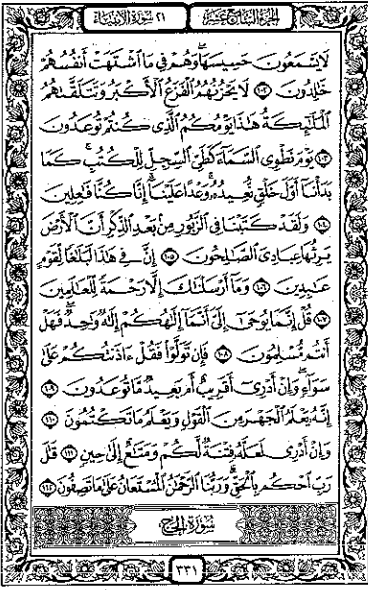 الجزء السابع عشر
٢١ سورة الأنبياء
لَا يَسْمَعُونَ حَسِيسَهَا وَهُمْ فِي مَا اشْتَهَتْ أَنفُسُهُمْ
خَالِدُونَ ١٠٢ لَا يَحْزُنُهُمُ الْفَزَعُ الْأَكْبَرُ وَتَتَلَقَّاهُمُ
الْمَلَائِكَةُ هَٰذَا يَوْمُكُمُ الَّذِي كُنتُمْ تُوعَدُونَ
١٠٣ يَوْمَ نَطْوِي السَّمَاءَ كَطَيِّ السِّجِلِّ لِلْكُتُبِ كَمَا
بَدَأْنَا أَوَّلَ خَلْقٍ نُّعِيدُهُ وَعْدًا عَلَيْنَا إِنَّا كُنَّا فَاعِلِينَ
١٠٤ وَلَقَدْ كَتَبْنَا فِي الزَّبُورِ مِنْ بَعْدِ الذِّكْرِ أَنَّ الْأَرْضَ
يَرِثُهَا عِبَادِيَ الصَّالِحُونَ ١٠٥ إِنَّ فِي هَٰذَا لَبَلَاغًا لِّقَوْمٍ
عَابِدِينَ ١٠٦ وَمَا أَرْسَلْنَاكَ إِلَّا رَحْمَةً لِّلْعَالَمِينَ
١٠٧ قُلْ إِنَّمَا يُوحَىٰ إِلَيَّ أَنَّمَا إِلَٰهُكُمْ إِلَٰهٌ وَاحِدٌ فَهَلْ
أَنتُم مُّسْلِمُونَ ١٠٨ فَإِن تَوَلَّوْا فَقُلْ ءَاذَنتُكُمْ عَلَىٰ
سَوَاءٍ وَإِنْ أَدْرِي أَقَرِيبٌ أَم بَعِيدٌ مَّا تُوعَدُونَ ١٠٩
إِنَّهُ يَعْلَمُ الْجَهْرَ مِنَ الْقَوْلِ وَيَعْلَمُ مَا تَكْتُمُونَ ١١٠
وَإِنْ أَدْرِي لَعَلَّهُ فِتْنَةٌ لَّكُمْ وَمَتَاعٌ إِلَىٰ حِينٍ ١١١ قَالَ
رَبِّ احْكُم بِالْحَقِّ وَرَبُّنَا الرَّحْمَٰنُ الْمُسْتَعَانُ عَلَىٰ مَا تَصِفُونَ ١١٢
سُورَةُ الحَجِّ
٣٣١